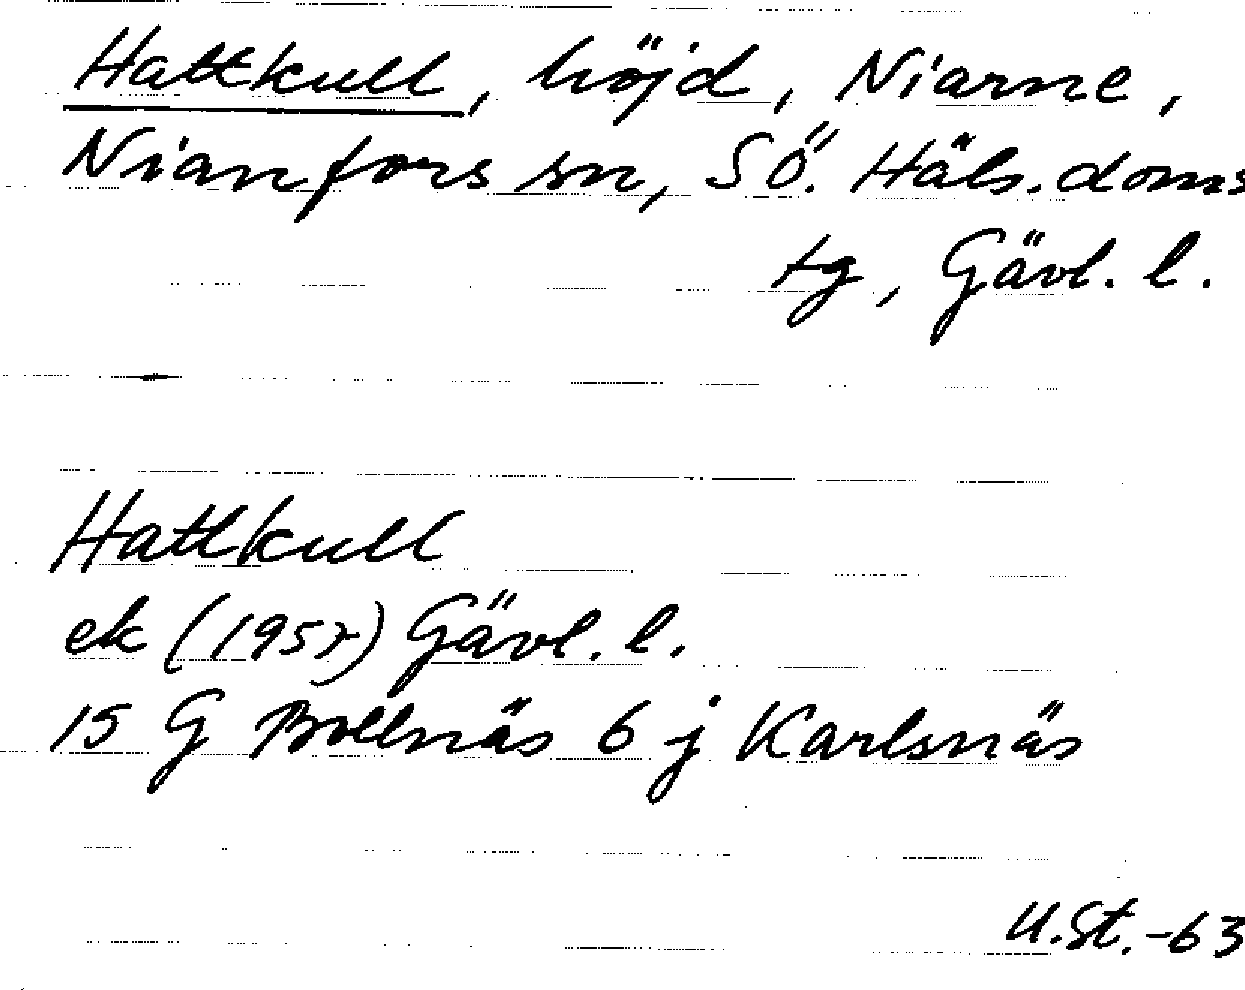 Hattkull, höjd, Niarne,
Nianfors sn, SÖ. Häls. doms
tg, Gävl. l.
Hattkull
ek (1957) Gävl. l.
15 G Bollnäs 6 j Karlsnäs
U.St.-63